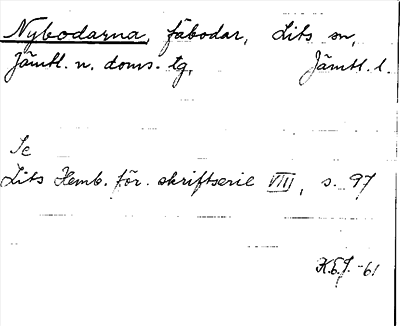 Nybodarna, fäbodar, Lits sn,
Jämtl. n. doms. tg, Jämtl. l.
Se
Lits Hemb. för. skriftserie VIII, s. 97
K.E.J. -61